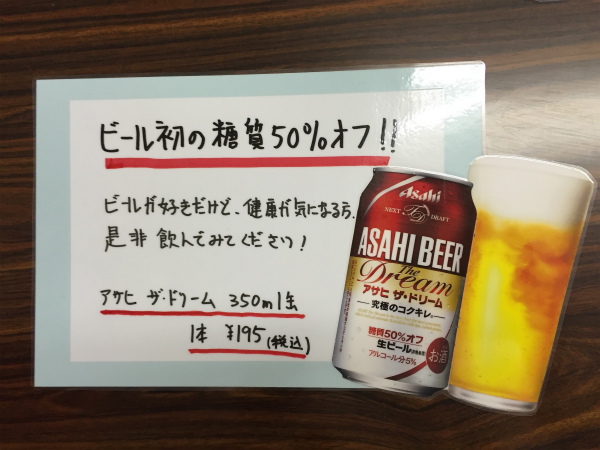 ビール初の糖質50%オフ!!
ビールが好きだけど、健康が気になる方、
是非飲んでみてください!
アサヒ ザ・ドリーム 350ml缶
1本 ¥195(税込)
Asahi
NEXT DRAFT
ASAHI BEER
The Dream
アサヒ ザ・ドリーム
究極のコクキレ。
糖質50%オフ
生ビール
アルコール分5%
お酒